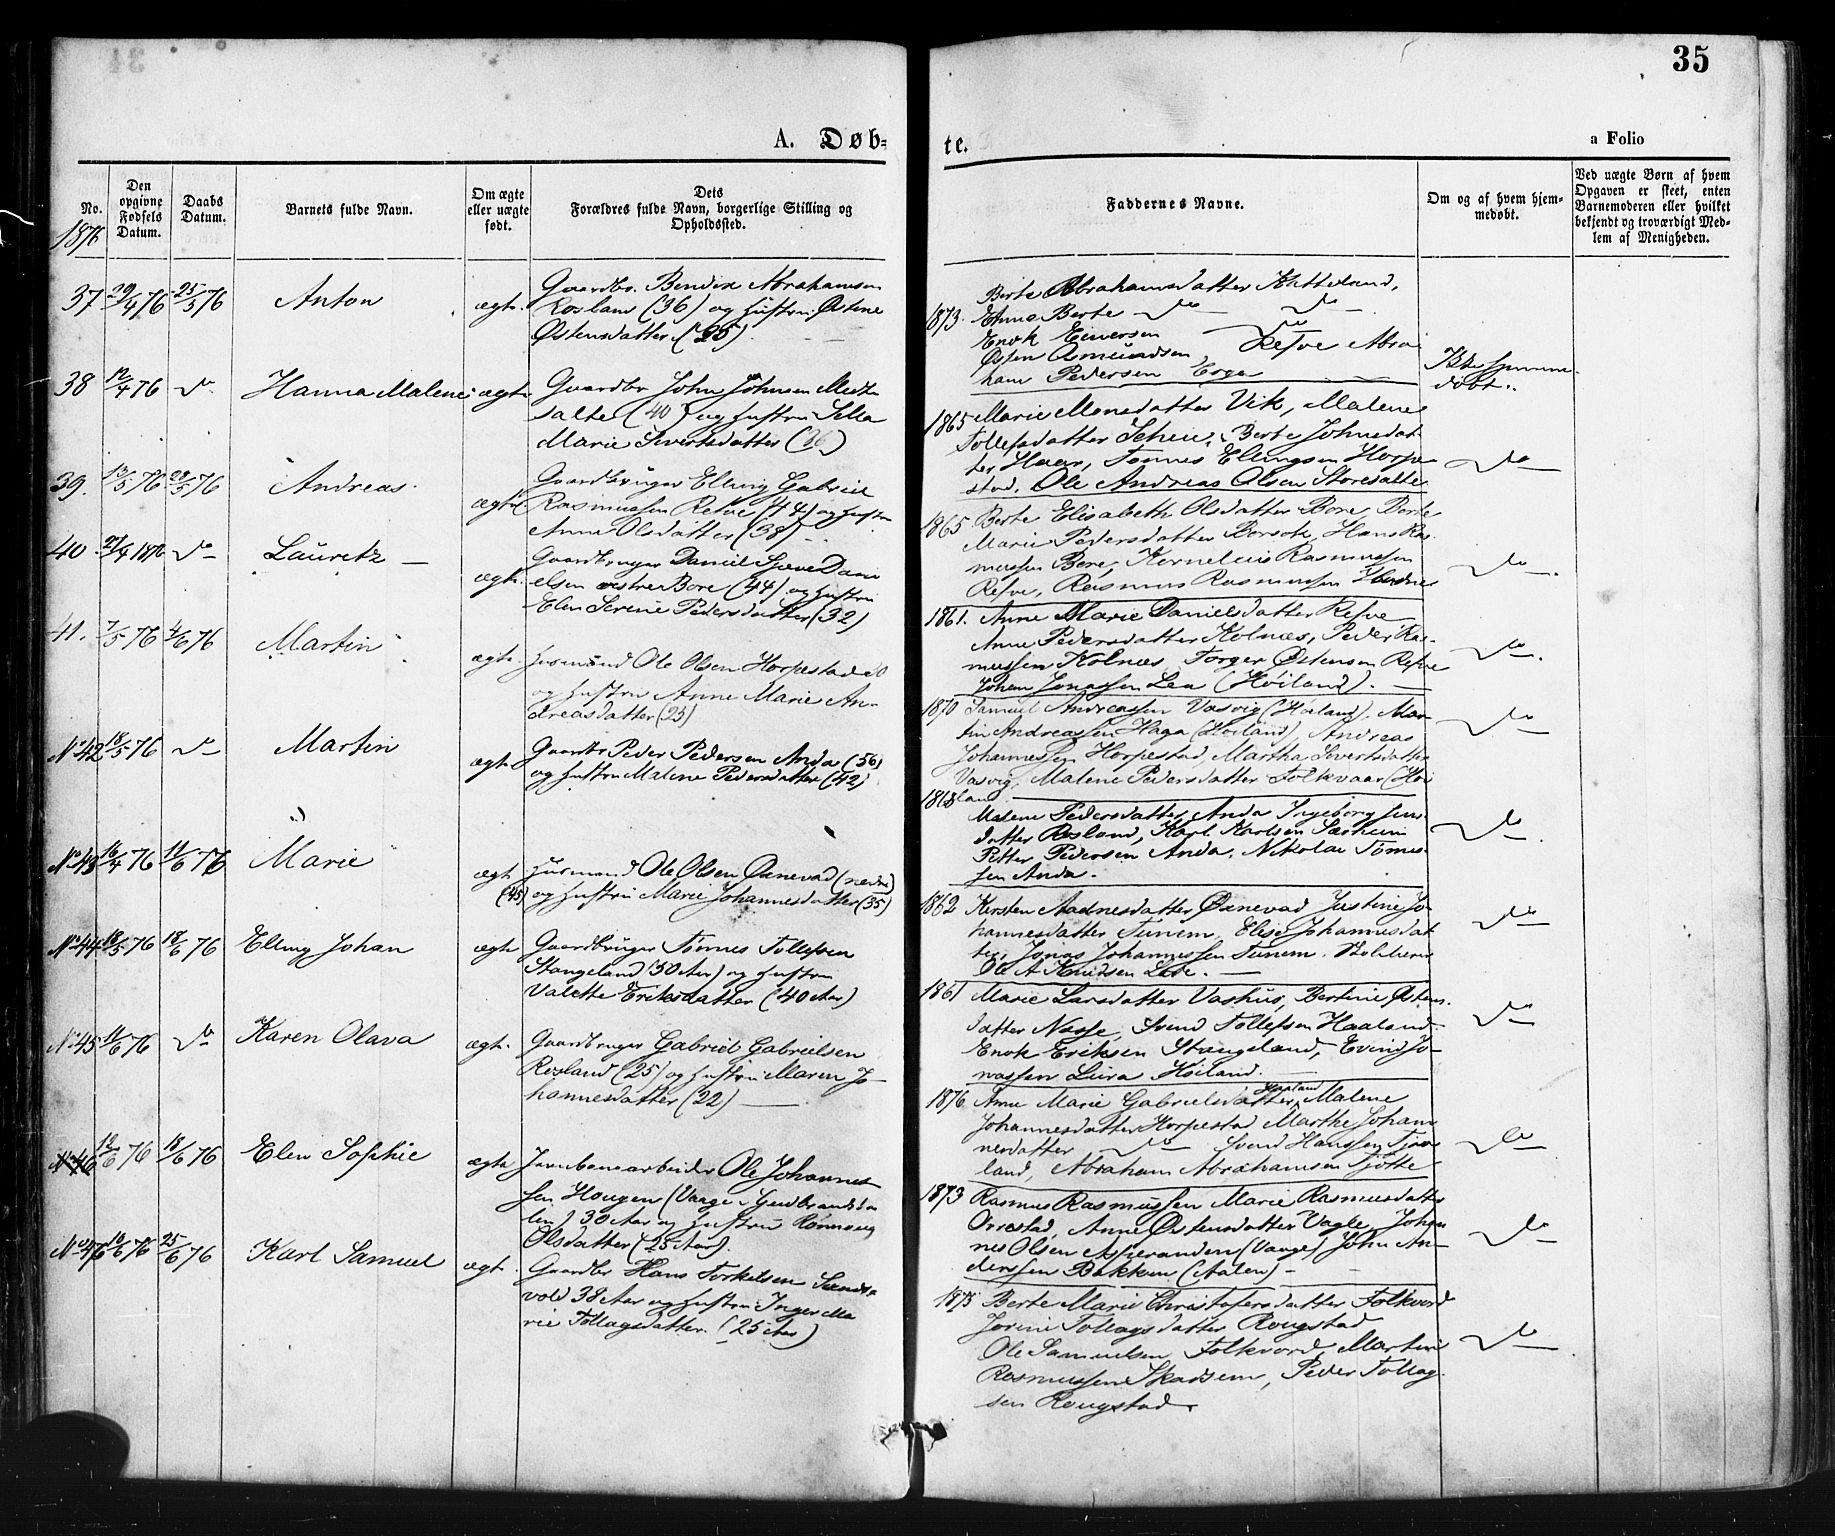 35
A. Døb-
te.
a Folio
No.
Den opgivne Fødsels Datum.
Daabs Datum.
Barnets fulde Navn.
Om ægte eller uægte født.
Dets Forældres fulde Navn, borgerlige Stilling og Opholdssted.
Faddernes Navne.
Om og af hvem hjem-
medøbt.
Ved uægte Børn af hvem
Opgaven er skeet, enten
Barnemoderen eller hvilket
bekjendt og troværdigt Med-
lem af Menigheden.
1876
37 29/4 76 25/5 76 Anton ægt.
Gaardbr. Bendix Abrahamsen
Rosland (36) og Hustru Østine
Østensdatter (25)
1873.
Berte Abrahamsdatter Katteland,
Anna Berte do do
Enok Einersen do
Østen Asmundsen Refve Abra
ham Pedersen Erga
Ikke hjemme
døbt.
38 12/4 76 do Hanna Malene ægte
Gaardbr John Johnsen
salte (40) og Hustru Sella
Marie Sivertsdatter (36)
1865
Marie Monsdatter Vik, Malene
Tollefsdatter Scheie, Berte Johnsdat
ter Haar, Tønnes Elingsen Horpe
stad, Ole Andreas Olsen Storesalte
do
39. 13/5 76 28/5 76 Andreas ægte
Gaardbruger Elling Gabriel
Rasmussen Refve (44) og Hustru
Anna Olsdatter (38)
1865
Berte Elisabeth Olsdatter Bore, Berte
Marie Pedersdatter Borsok, Hans Ras
mussen Bore, Kornelius Rasmussen
Refve, Rasmus Rasmussen
do
40 27/4 1876 do Lauretz ægt.
Gaardbruger Daniel Dani
elsen vestre Bore (44) og Hustru
Elen Serene Pedersdatter (32)
1861.
Anne Marie Danielsdatter Refve
Anne Pedersdatter Kolnæs, Peder Ras-
mussen Kolnæs Torger Østensen Refve
Johan Jonassen Lea (Høiland).
do
41. 7/5 76 4/6 76 Martin ægt.
Husmand Ole Olsen Horpestad 30
og Hustru Anne Marie An-
dreasdatter (25)
1870
Samuel Andreassen Vasvig (Høiland), Mar
tin Andreassen Haga (Høiland), Andreas
Johannessen Horpestad, Martha Sivertsdatter
Vasvig, Malene Pedersdatter Folkvaar (Høi
land
do
No 42 18/5 76 do Martin ægt.
Gaardbr Peder Pedersen Anda (56)
og Hustru Malene Pedersdatter (42)
1868
Malene Pedersdatter Anda Ingeborg Jens
datter Rosland, Karl Karlsen Sæheim
Petter Pedersen Anda, Nikolai Tønnes-
sen Anda.
do
No 43 16/4 76 11/6 76 Marie ægt
Husmand Ole Olsen Øxnevad (nedre)
(45) og Hustru Marie Johannesdatter (35)
1862
Kirsten Aadnesdatter Øxnevad Justine Jo
hannesdatter Tunem, Elise Johannesdat
ter, Jonas Johannessen Tunem.
Ole A Knudsen Lode.
do
No 44 18/5 76 18/6 76 Elling Johan ægt.
Gaardbruger Tønnes Tollefsen
Stangeland (50 Aar) og Hustru
Valette Eriksdatter (40 Aar)
1861
Marie Larsdatter Vashus, Bertine Østens
datter Næsse, Svend Tollefsen Haaland
Enok Eriksen Stangeland, Evind Jo-
nassen Lura Høiland.
do
No 45 11/6 76 do Karen Olava ægt.
Gaardbruger Gabriel Gabrielsen
Rosland (25) og Hustru Maren Jo-
hannesdatter (22)
1876
Anne Marie Gabrielsdatter Haaland, Malene
Johannesdatter Horpestad Marthe Johan
nesdatter do Svend Hanssen
land, Abraham Abrahamsen Tjøtte
do
No 46 12/6 76 18/6 76 Elen Sophie ægte
Jernbanearbeider Ole Johannes
sen Hougen (Vaage i Gudbrandsda
len) 30 Aar og Hustru Rønnaug
Olsdatter (25 Aar).
1873
Rasmus Rasmussen Marie Rasmusdatter
Orrestad, Anne Østensdatter Vagle, Johan
nes Olsen (Vaage) John An-
derssen Bakken (Aalen)
do
No 46 10/6 76 25/6 76 Karl Samuel ægt.
Gaardbr Hans Torkelsen Sands-
vold 38 Aar og Hustru Inger Ma
rie Tollagsdatter. (25 Aar)
1875
Berte Marie Christofersdatter Folkvord
Jorine Tollagsdatter Rougstad
Ole Samuelsen Folkvord, Martin
Rasmussen Skadsem, Peder Tollag-
sen Rougstad.
do